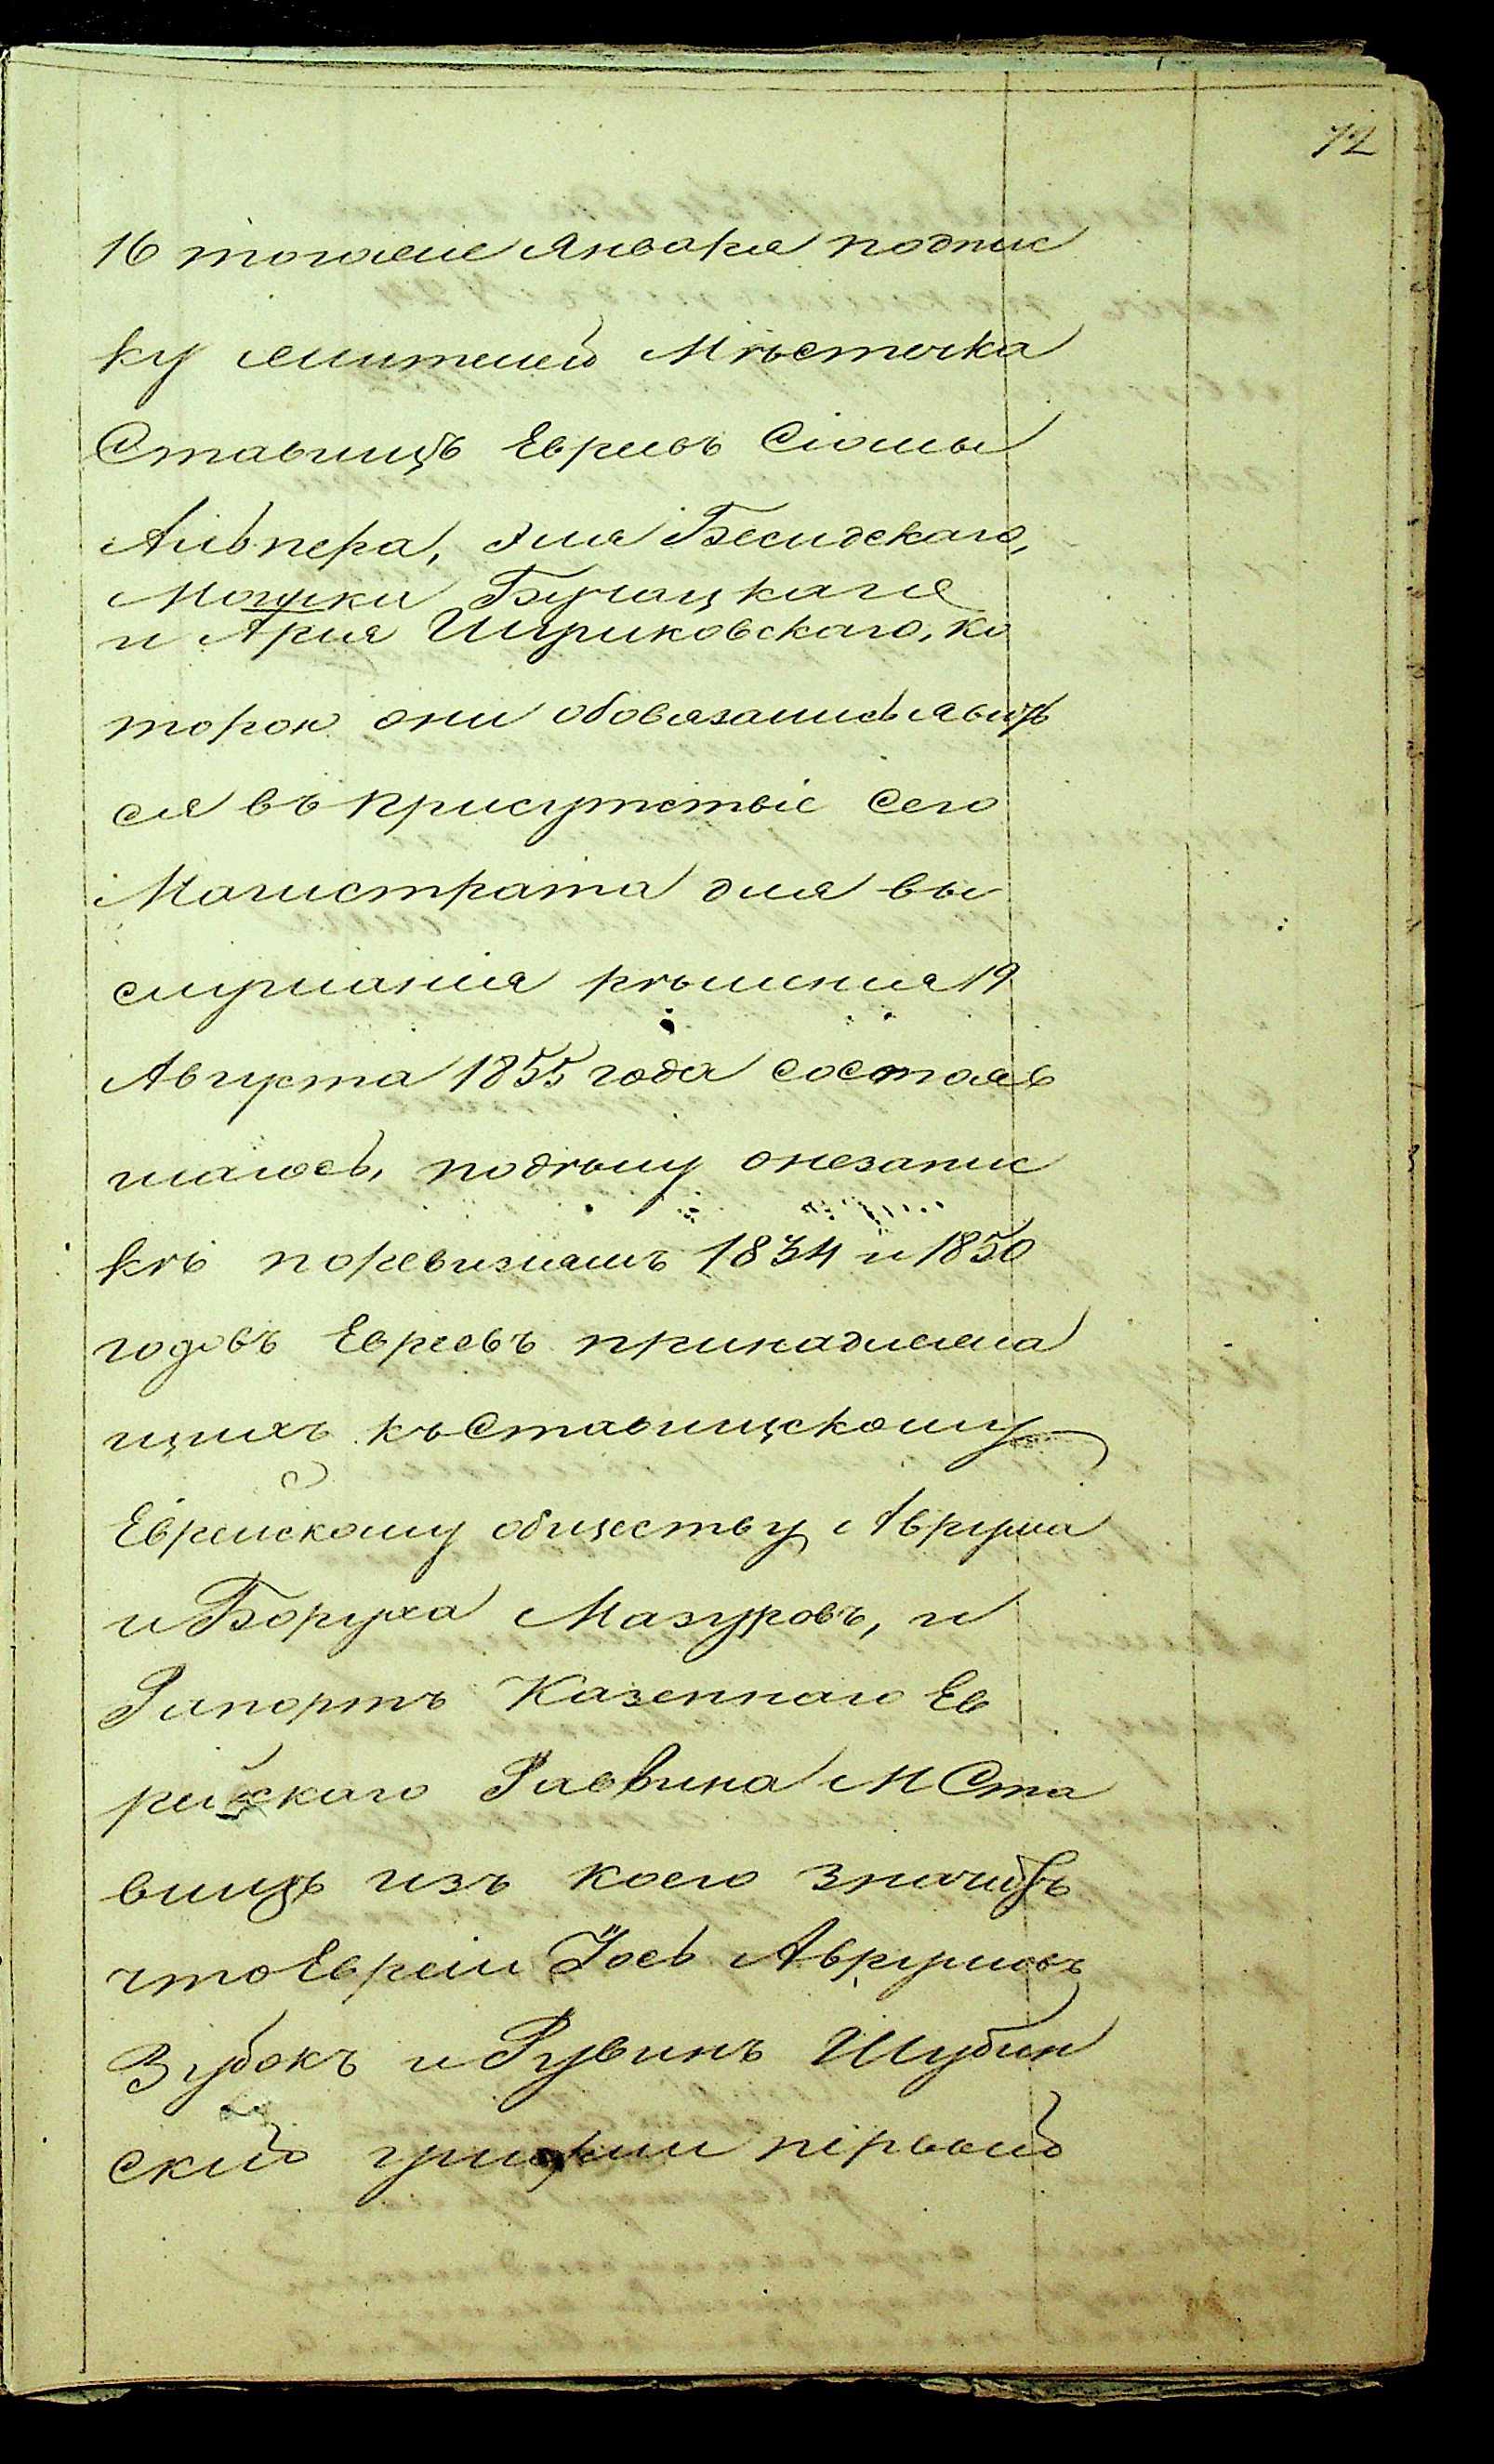 72
16 тогоже Января подпис
ку жителей Мѣстечка
Ставищъ Евреевъ Сіомы
Альпера, Эля Беседскаго,
Мошки Бучацкаго
и Арія Ширшовскаго, ко
торою они обовязались явить
ся въ присутствіе сего
Магистрата для вы
слушанія рѣшенія 19
Августа 1855 года состояв
шагось, подѣлу онезапис
кѣ поревизіямъ 1834 и 1850
годовъ Евреевъ принадлежа
щихъ къ Ставищскому
Еврейскому обществу Аврума
и Боруха Мазуровъ, и
Рапортъ Казеннаго Ев
рейскаго Раввина М Ста
вищъ изъ коего значитъ
что Евреи Іось Аврумовъ
Зубокъ и Рувинъ Шубин
скій умерли первый